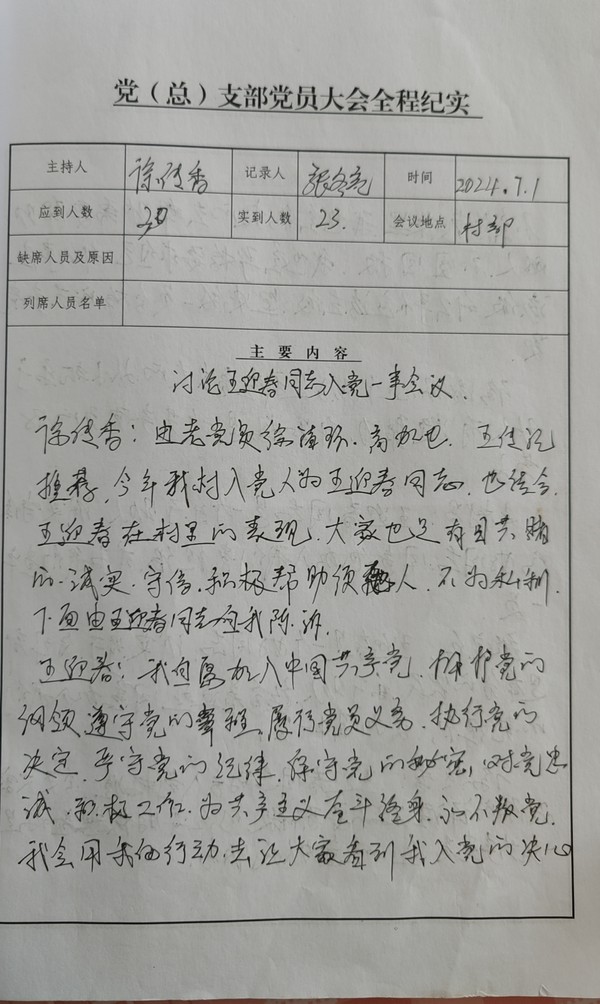 党（总）支部党员大会全程纪实
主持人 徐传香 记录人 张冬亮 时间 2024.7.1
应到人数 30 实到人数 23. 会议地点 村部
缺席人员及原因
列席人员名单
主要内容
讨论王迎春同志入党一事会议.
徐传香：由老党员徐 . 高 . 王传
推荐, 今年我村入党人为王迎春同志, 也结合
王迎春在村里的表现, 大家也是有目共睹
的. 诚实. 守信. 积极帮助 人. 不为私利.
下面由王迎春同志自我陈诉.
王迎春：我自愿加入中国共产党, 拥护党的
纲领遵守党的章程, 履行党员义务, 执行党的
决定, 严守党的纪律, 保守党的秘密, 对党忠
诚, 积极工作, 为共产主义奋斗终身, 永不叛党.
我会用我的行动, 去让大家看到我入党的决心